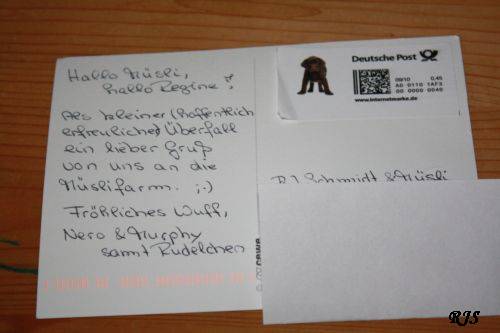 Hallo Müsli,
hallo Regine!
Als kleiner (hoffentlich
erfreulicher) Überfall
ein lieber Gruß
von uns an die
Müslifarm. ;-)
Fröhliches Wuff,
Nero & Murphy
samt Rudelchen
Deutsche Post
09/10 0,45
A0 0110 1AF3
00 0000 0040
www.internetmarke.de
RJ Schmidt & Müsli
cewe
RJS